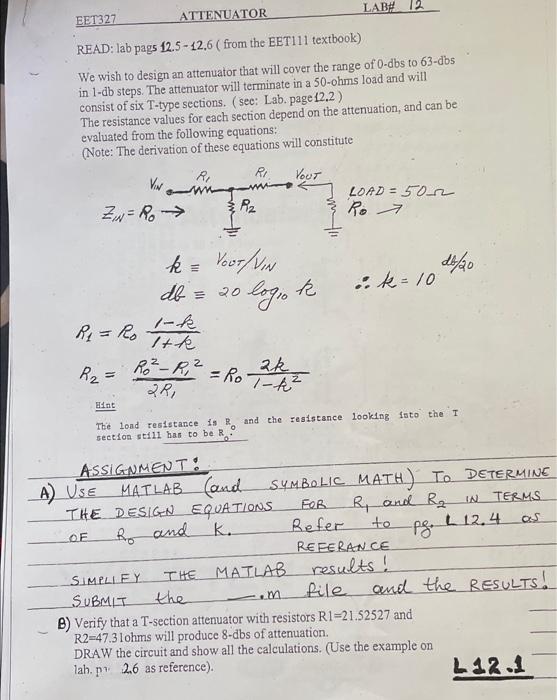 EET327 ATTENUATOR LAB# 12
READ: lab pags 12.5 - 12.6 ( from the EET111 textbook)
We wish to design an attenuator that will cover the range of 0-dbs to 63-dbs
in 1-db steps. The attenuator will terminate in a 50-ohms load and will
consist of six T-type sections. ( see: Lab. page 12.2 )
The resistance values for each section depend on the attenuation, and can be
evaluated from the following equations:
(Note: The derivation of these equations will constitute
VIN R1 R1 VOUT
LOAD = 50Ω
ZIN = R0 → R2 R0 →
k ≡ VOUT/VIN
db ≡ 20 log10 k ∴ k = 10^db/20
R1 = R0 (1-k)/(1+k)
R2 = (R0² - R1²)/(2R1) = R0 2k/(1-k²)
Hint
The load resistance is Ro and the resistance looking into the T
section still has to be Ro.
ASSIGNMENT:
A) USE MATLAB (and SYMBOLIC MATH) TO DETERMINE
THE DESIGN EQUATIONS FOR R1 and R2 IN TERMS
OF Ro and K. Refer to pg. L12.4 as
REFERANCE
SIMPLIFY THE MATLAB results!
SUBMIT the —.m file and the RESULTS!
B) Verify that a T-section attenuator with resistors R1=21.52527 and
R2=47.31ohms will produce 8-dbs of attenuation.
DRAW the circuit and show all the calculations. (Use the example on
lab. 2.6 as reference).
L12.1